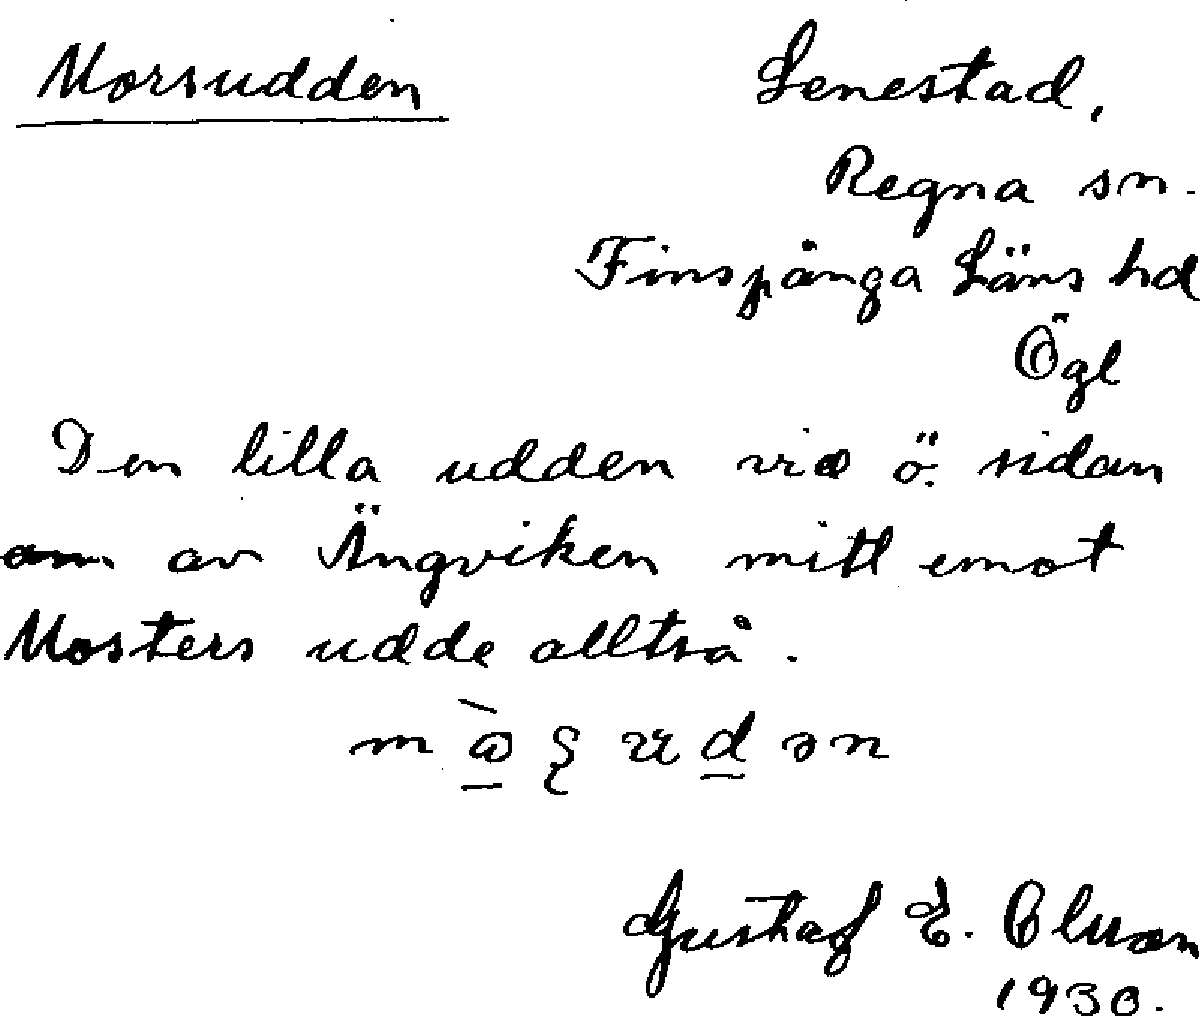 Morsudden
Lenestad,
Regna sn.
Finspånga Läns hd
Ögl
Den lilla udden vid ö. sidan
av Ängviken mitt emot
Mosters udde alltså.
Gustaf E. Olsson
1930.